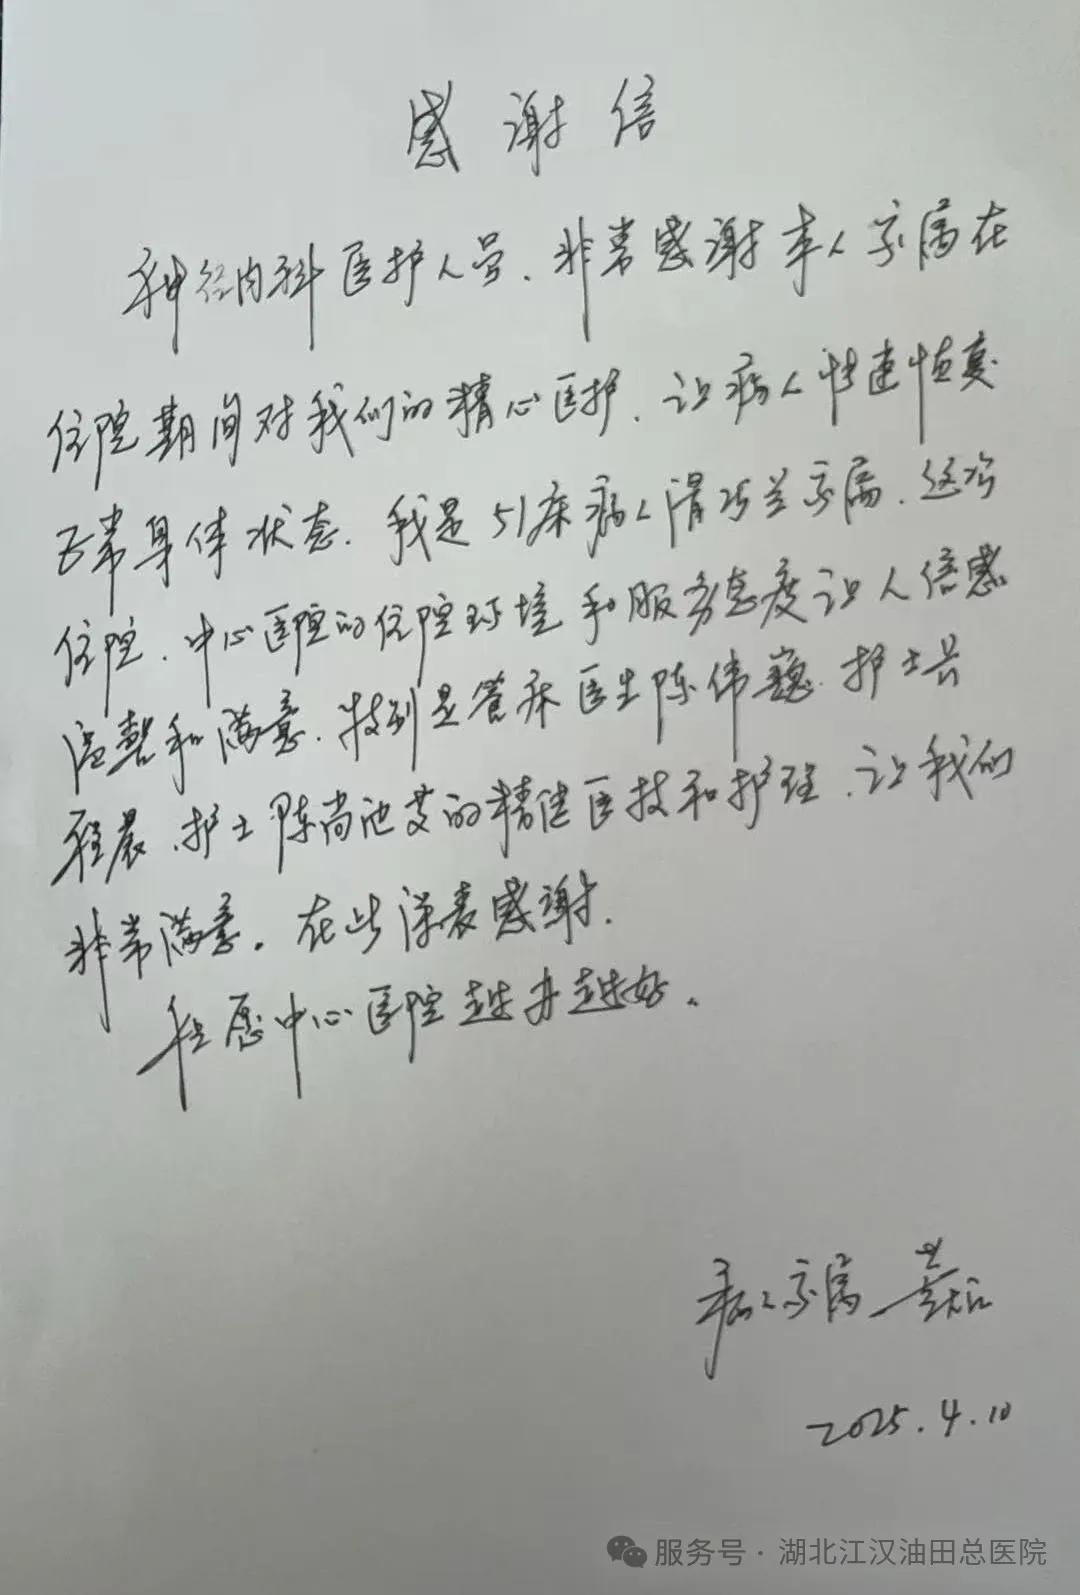 感谢信
神经内科医护人员、非常感谢本人家属在
住院期间对我们的精心医护、让病人快速恢复
正常身体状态、我是51床病人 兰家属、这次
住院、中心医院的住院环境和服务态度让人倍感
温馨和满意、特别是管床医生陈伟巍、护士长
程晨、护士陈尚池 的精 医技和护理、让我们
非常满意。在此深表感谢、
祝愿中心医院越办越好。
病人家属
2025.4.10
服务号·湖北江汉油田总医院